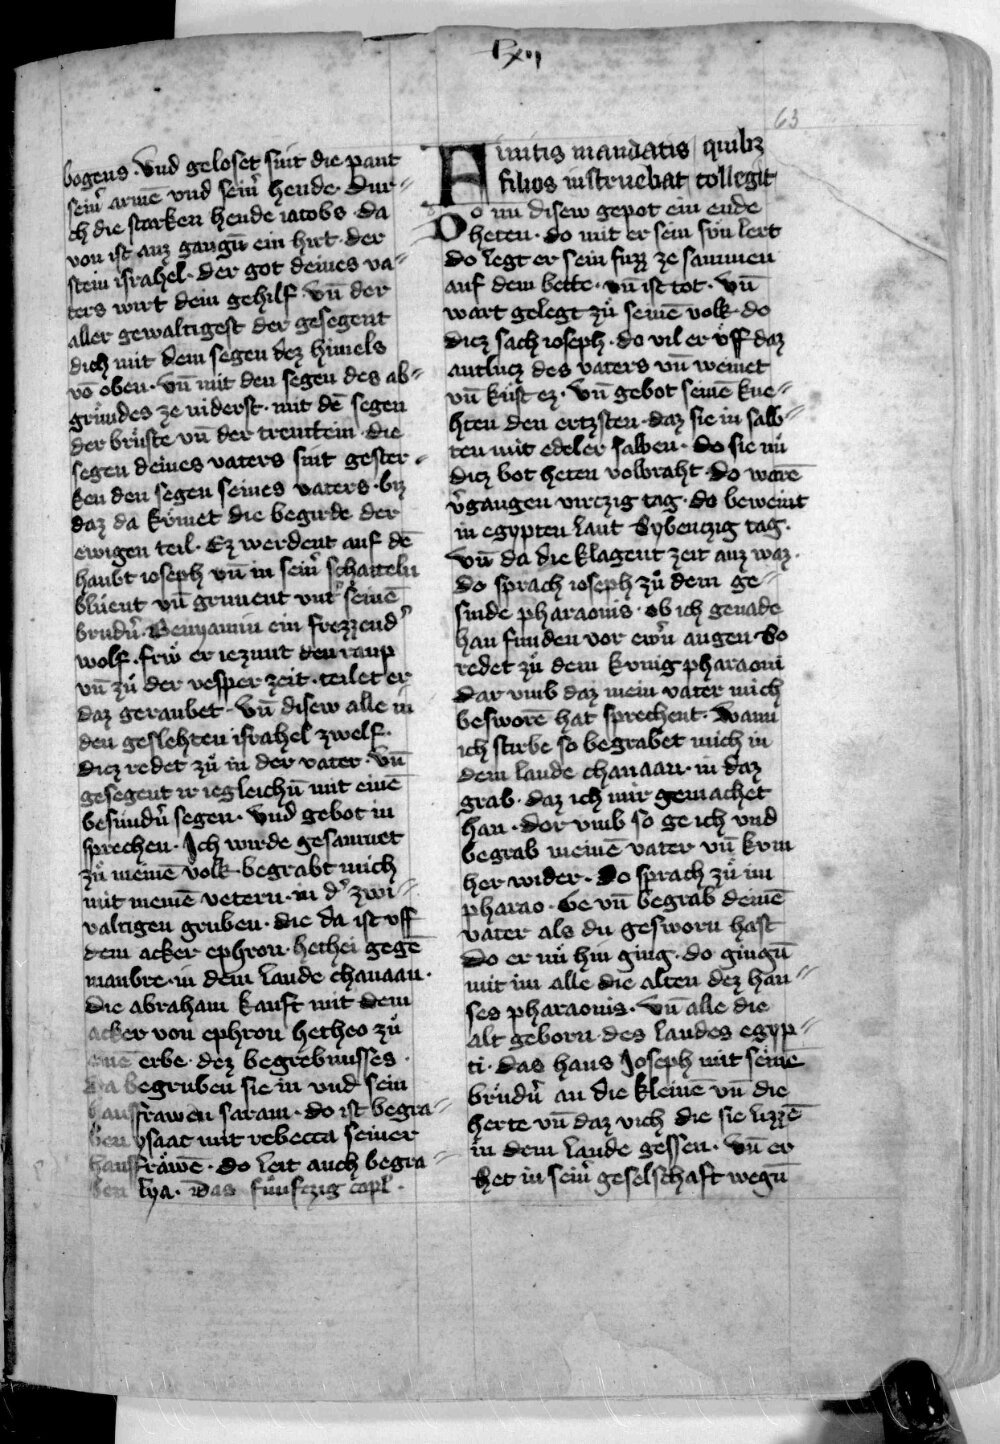 lxıı
63
bogens. Vnd geloset sint die pant
seinˀ armē vnd seinˀ hende. Dur⸗
ch die starken hende iacobs. da
von ist auz gangn̄ ein hirt. der
stein israhel. der got deines va⸗
ters wirt dein gehilf. vn̄ der
aller gewaltigest der gesegent
dich mit dem segen dez himels
vō oben. vn̄ mit den segen des ab⸗
grundes ze niderst. mit dē segen
der brüste vn̄ der trenttein. die
segen deines vaters sint gester⸗
ken den segen seines vaters. biz
daz da kumet die begirde der
ewigen teil. Ez werdent auf dē
haubt ioseph vn̄ in seinˀ schaiteln
blüent vn̄ grunent vntˀ seinē
brudn̄. Beniamin ein frezzendˀ
wolf. frů er iezunt den raup
vn̄ zů der vesper zeit. teilet er
daz geraubet. Vn̄ disew alle in
den geslehten israhel zwelf.
Diez redet zů in der vater. vn̄
gesegent ir iegleichn̄ mit einē
besundn̄ segen. Vnd gebot in
sprechen. Ich wirde gesammet
zů meinē volk. begrabt mich
mit meinē vetern. in dˀ zwi⸗
valtigen gruben. die da ist vff
dem acker ephron. hethei gegē
manbre. in dem lande chanaan.
die abraham kauft mit dem
acker von ephron hetheo zů
einē erbe. dez begrebnusses.
Da begruben sie in vnd sein
hausfrawen saram. do ist begra⸗
ben ysaac mit rebecca seiner
hausfrawē. do leit auch begra⸗
ben lya. Das funfczig capl.
Finitis mandatis quibz
filios instruebat collegit
Do nu disew gepot ein ende
heten. do mit er sein sün lert
do legt er sein fuzz ze sammen
auf dem bette. vn̄ ist tot. vn̄
wart gelegt zů seinē volk. do
diez sach ioseph. do vil er vff daz
antlucz des vaters vn̄ weinet
vn̄ kust ez. vn̄ gebot seinē kne⸗
hten den ertzsten. daz sie in salb⸗
ten mit edeler salben. do sie nu
diez bot heten volbraht. do warē
v̄gangen virczig tag. do beweint
in egypten laut Sybenczig tag.
vn̄ da die klagent zeit auz waz.
do sprach ioseph zů dem ge⸗
sinde pharaonis. ob ich genade
han funden vor ewrn̄ augen so
redet zů dem kunig pharaoni
dar vmb daz mein vater mich
besworē hat sprechent. wann
ich stirbe so begrabet mich in
dem lande chanaan. in daz
grab. daz ich mir gemachet
han. dor vmb so ge ich vnd
begrab meinē vater vn̄ kum
her wider. do sprach zů im
pharao. Ge vn̄ begrab deinē
vater als du gesworn hast
do er nu hin ging. do gingn̄
mit im alle die alten dez hau⸗
ses pharaonis. vn̄ alle die
alt geborn. des landes egyp⸗
ti. das haus Joseph mit seinē
brudn̄ an die kleine vn̄ die
herte vn̄ daz vich die sie lizzē
in dem lande gessen. vn̄ er
het in seinˀ geselschaft wegn̄